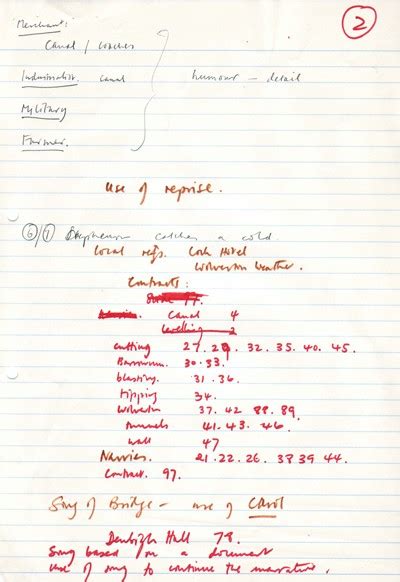 2
Merchant:
Canal / coaches
Industrialist. canal
humour – detail
Military
Farmer.
Use of reprise.
6/7 Stephenson catches a cold.
Local refs. Cock Hotel
Wolverton Weather.
Contracts:
canal 4
levelling 2
cutting 27. 29. 32. 35. 40. 45.
Barrowrun. 30. 33.
blasting. 31. 36.
tipping 34.
Wolverton 37. 42 88. 89.
tunnels 41. 43. 46.
wall 47
Navvies. 21. 22. 26. 38 39 44.
Contract. 97.
Song of Bridge – use of Carol
Denbigh Hall 78.
Song based on a document
Use of song to continue the narrative.